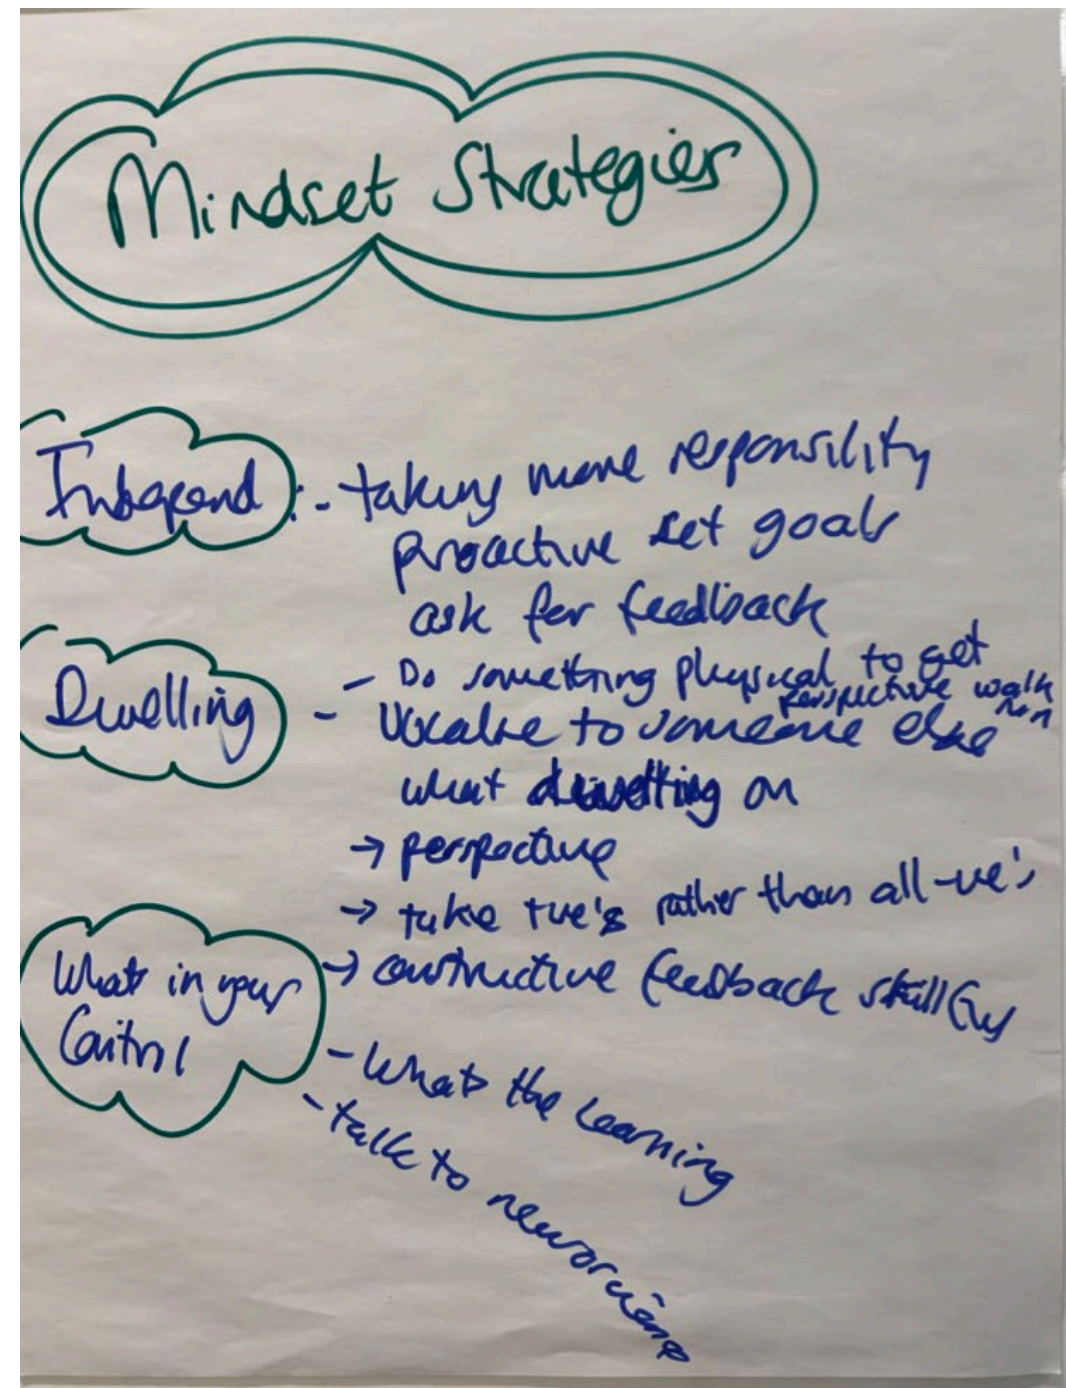 Mindset Strategies
Independ :- taking more responsility
proactive set goals
ask for feedback
Dwelling
- Do something physical to get
perspective walk
run
- Vocalise to someone else
what dwelling on
→ perspective
→ take +ve's rather than all -ve's
What's in your
Control
→ constructive feedback skill
- What's the learning
- talk to